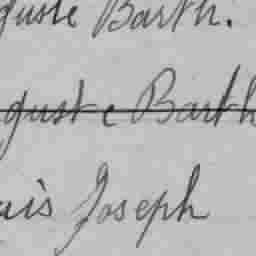 guste Barth.
guste Barth
uis Joseph